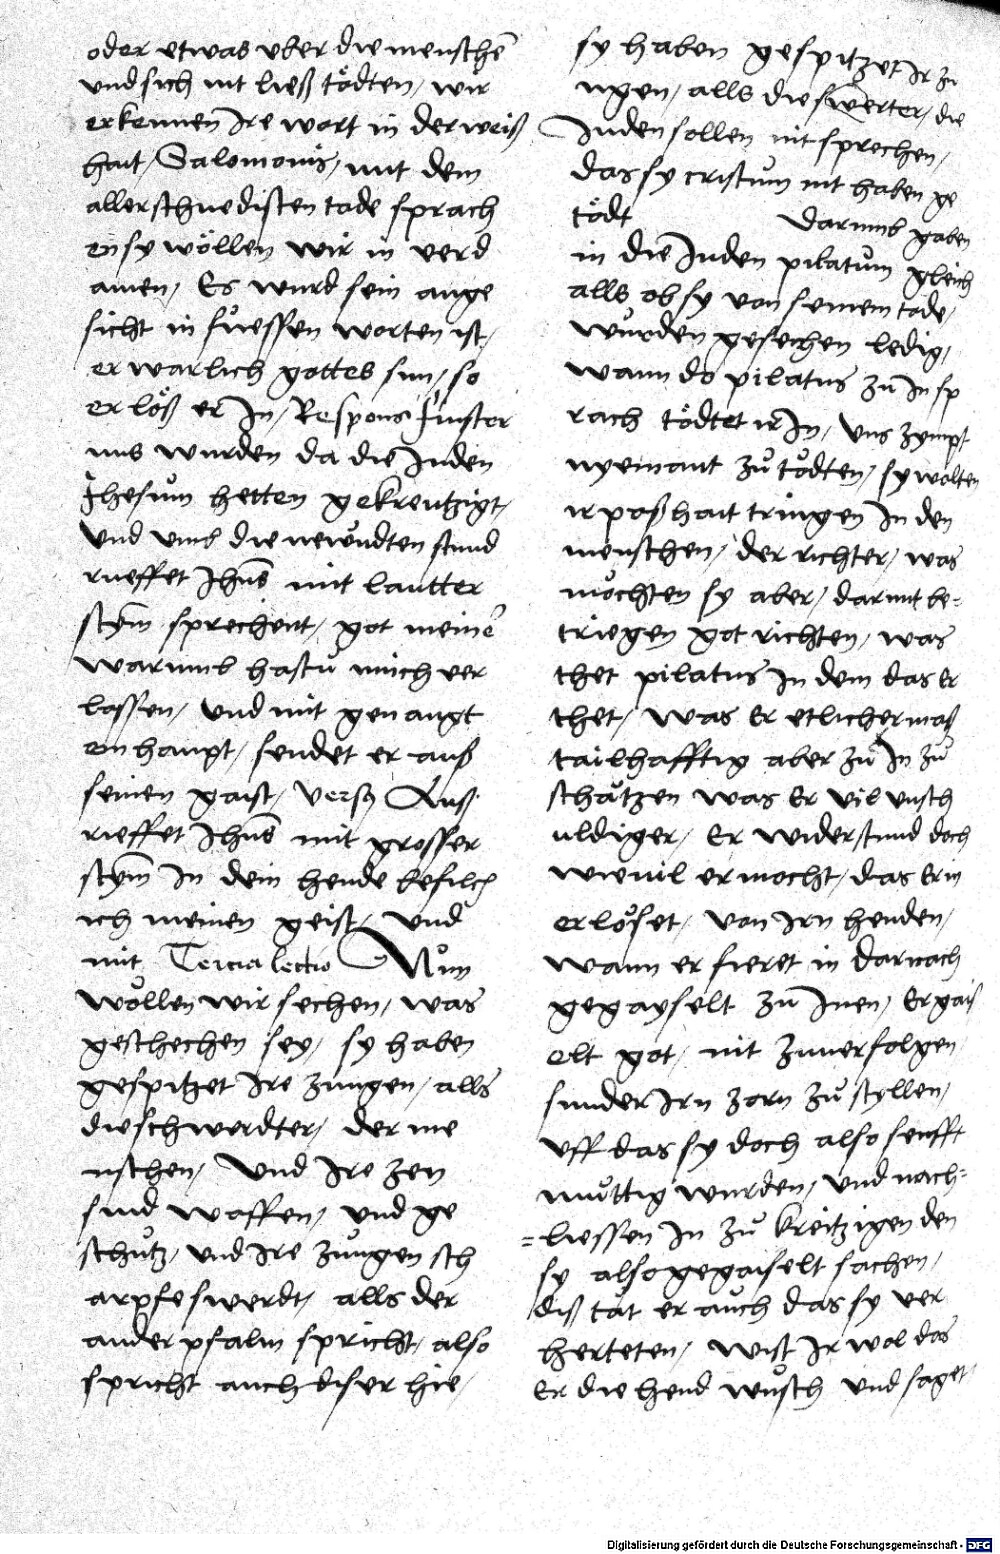 oder etwas vber die menschē
vnd sich nit ließ tödten / wir
erkennen Ire wort in der weiß
hait / Salomonis / mit dem
aller schnedisten tode sprach
en sy wöllen wir in verd
amen / Es wurd sein ange
sicht in fuessen worten ist /
er warlich gottes sun / so
erlöß er In / Respons Finster
nus wurden da die Juden
Jhesum hetten gekreutzigt /
vnd vmb die newndten stund
rueffet Jhus mit lautter
stym sprechent / got meinē
warumb hastu mich ver
lassen / vnd mit genaigt
em haupt / sendet er auß
seinen gaist / Versy Auß
rieffet Jhus mit grosser
stym In dein hende befilch
ich meinen geist / vnd
mit Tercia lectio Nun
wöllen wir sechen / was
geschechen sey / sy haben
gespitzet Ire zungen / alls
die schwerdter / der me
nschen / Vnd Ire zen
sind waffen / vnd ge
schutz / vnd Ire zungen sch
arpfe swerdt / alls der
ander psalm spricht / also
spricht auch diser hie /
sy haben gespitzet Ir zu
ngen / alls die swerter / die
Juden sollen nit sprechen /
das sy cristum nit haben ge
tödt Darumb gaben
in die Juden pilatum gleich
alls ob sy von seinem tode /
wurden gesechen ledig /
wann do pilatus zu In sp
rach tödtet ir In / vns zympt
nyemant zu tödten / sy wolten
ir poßhait tringen In den
menschen / der richter / was
möchten sy aber / darmit be-
triegen got richten / was
thet pilatus In dem das Er
thet / was Er etlichermaß
tailhafftig aber zu In zu
schätzen was Er vil vnsch
uldiger / Er widerstund doch
wieuil er mocht / das Er in
erlöset / von Irn henden /
wann er fieret in darnach
gegayselt zu Inen / Er gais
elt got / nit zuuerfolgen
sunder Irn zorn zu styllen /
vff das sy doch also senfft
muttig wurden / vnd nach-
=liessen In zu kreitzigen den
sy also gegaiselt sachen /
diß tät er auch das sy ver
herteten / wist Ir wol das
Er die hend wusch vnd saget
Digitalisierung gefördert durch die Deutsche Forschungsgemeinschaft - DFG